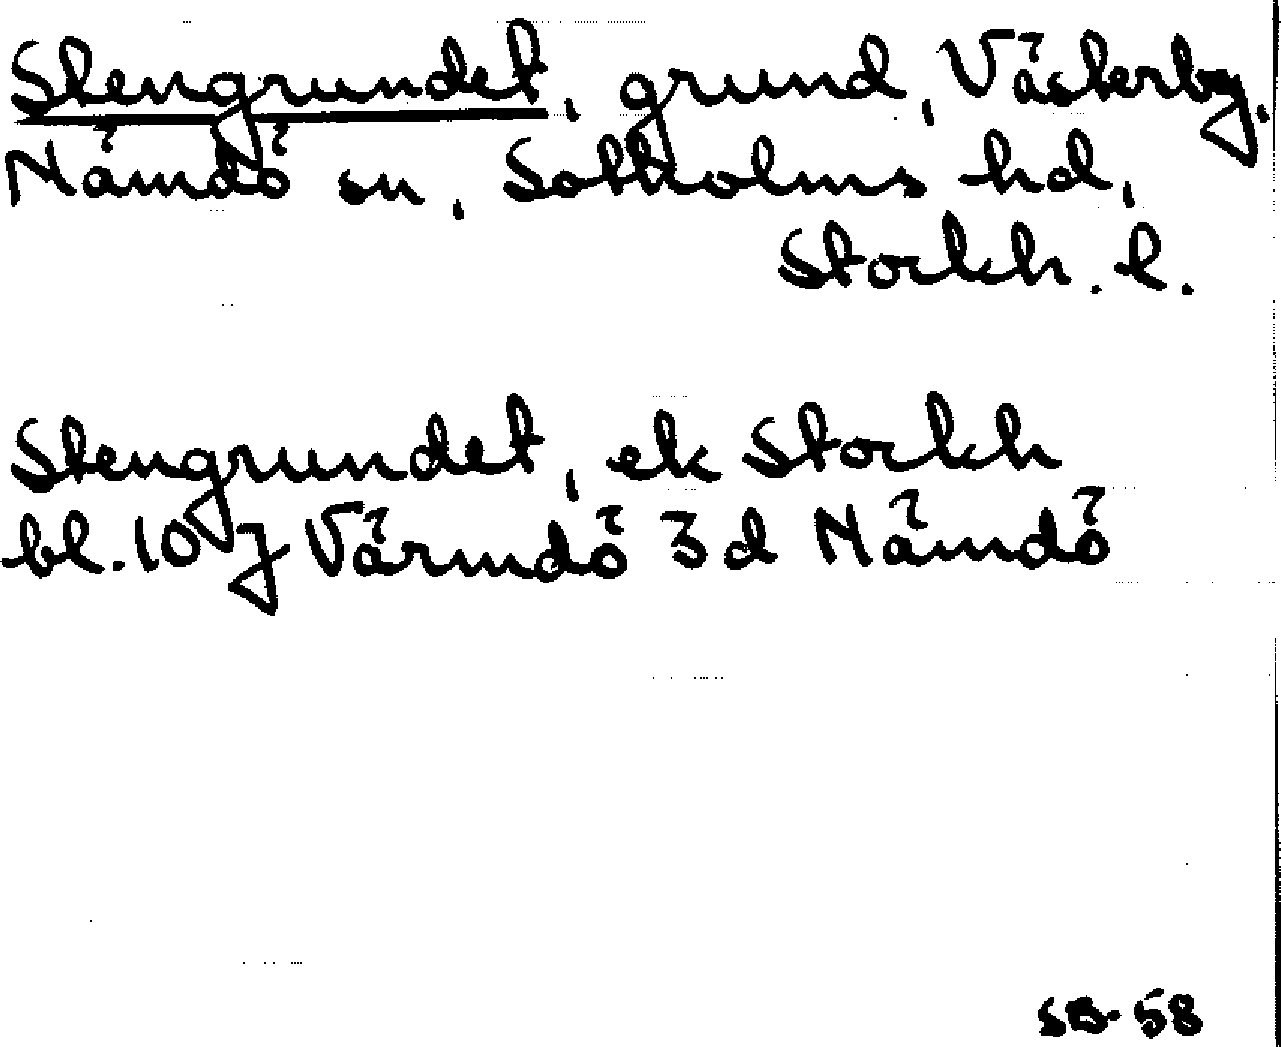 Stengrundet, grund, Västerby.
Nämdö sn, Sotholms hd,
Stockh. l.
Stengrundet, ek Stockh
bl. 10 J Värmdö 3 d Nämdö
SB-58